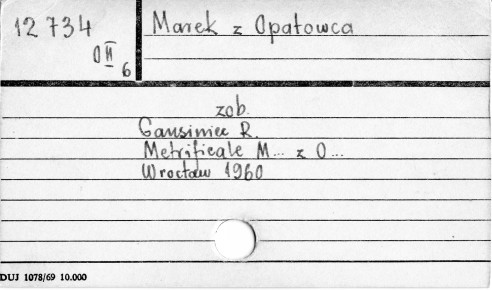 12 734
O II 6
Marek z Opatowca
zob.
Gansiniec R.
Metrificale M... z O...
Wrocław 1960
DUJ 1078/69 10.000